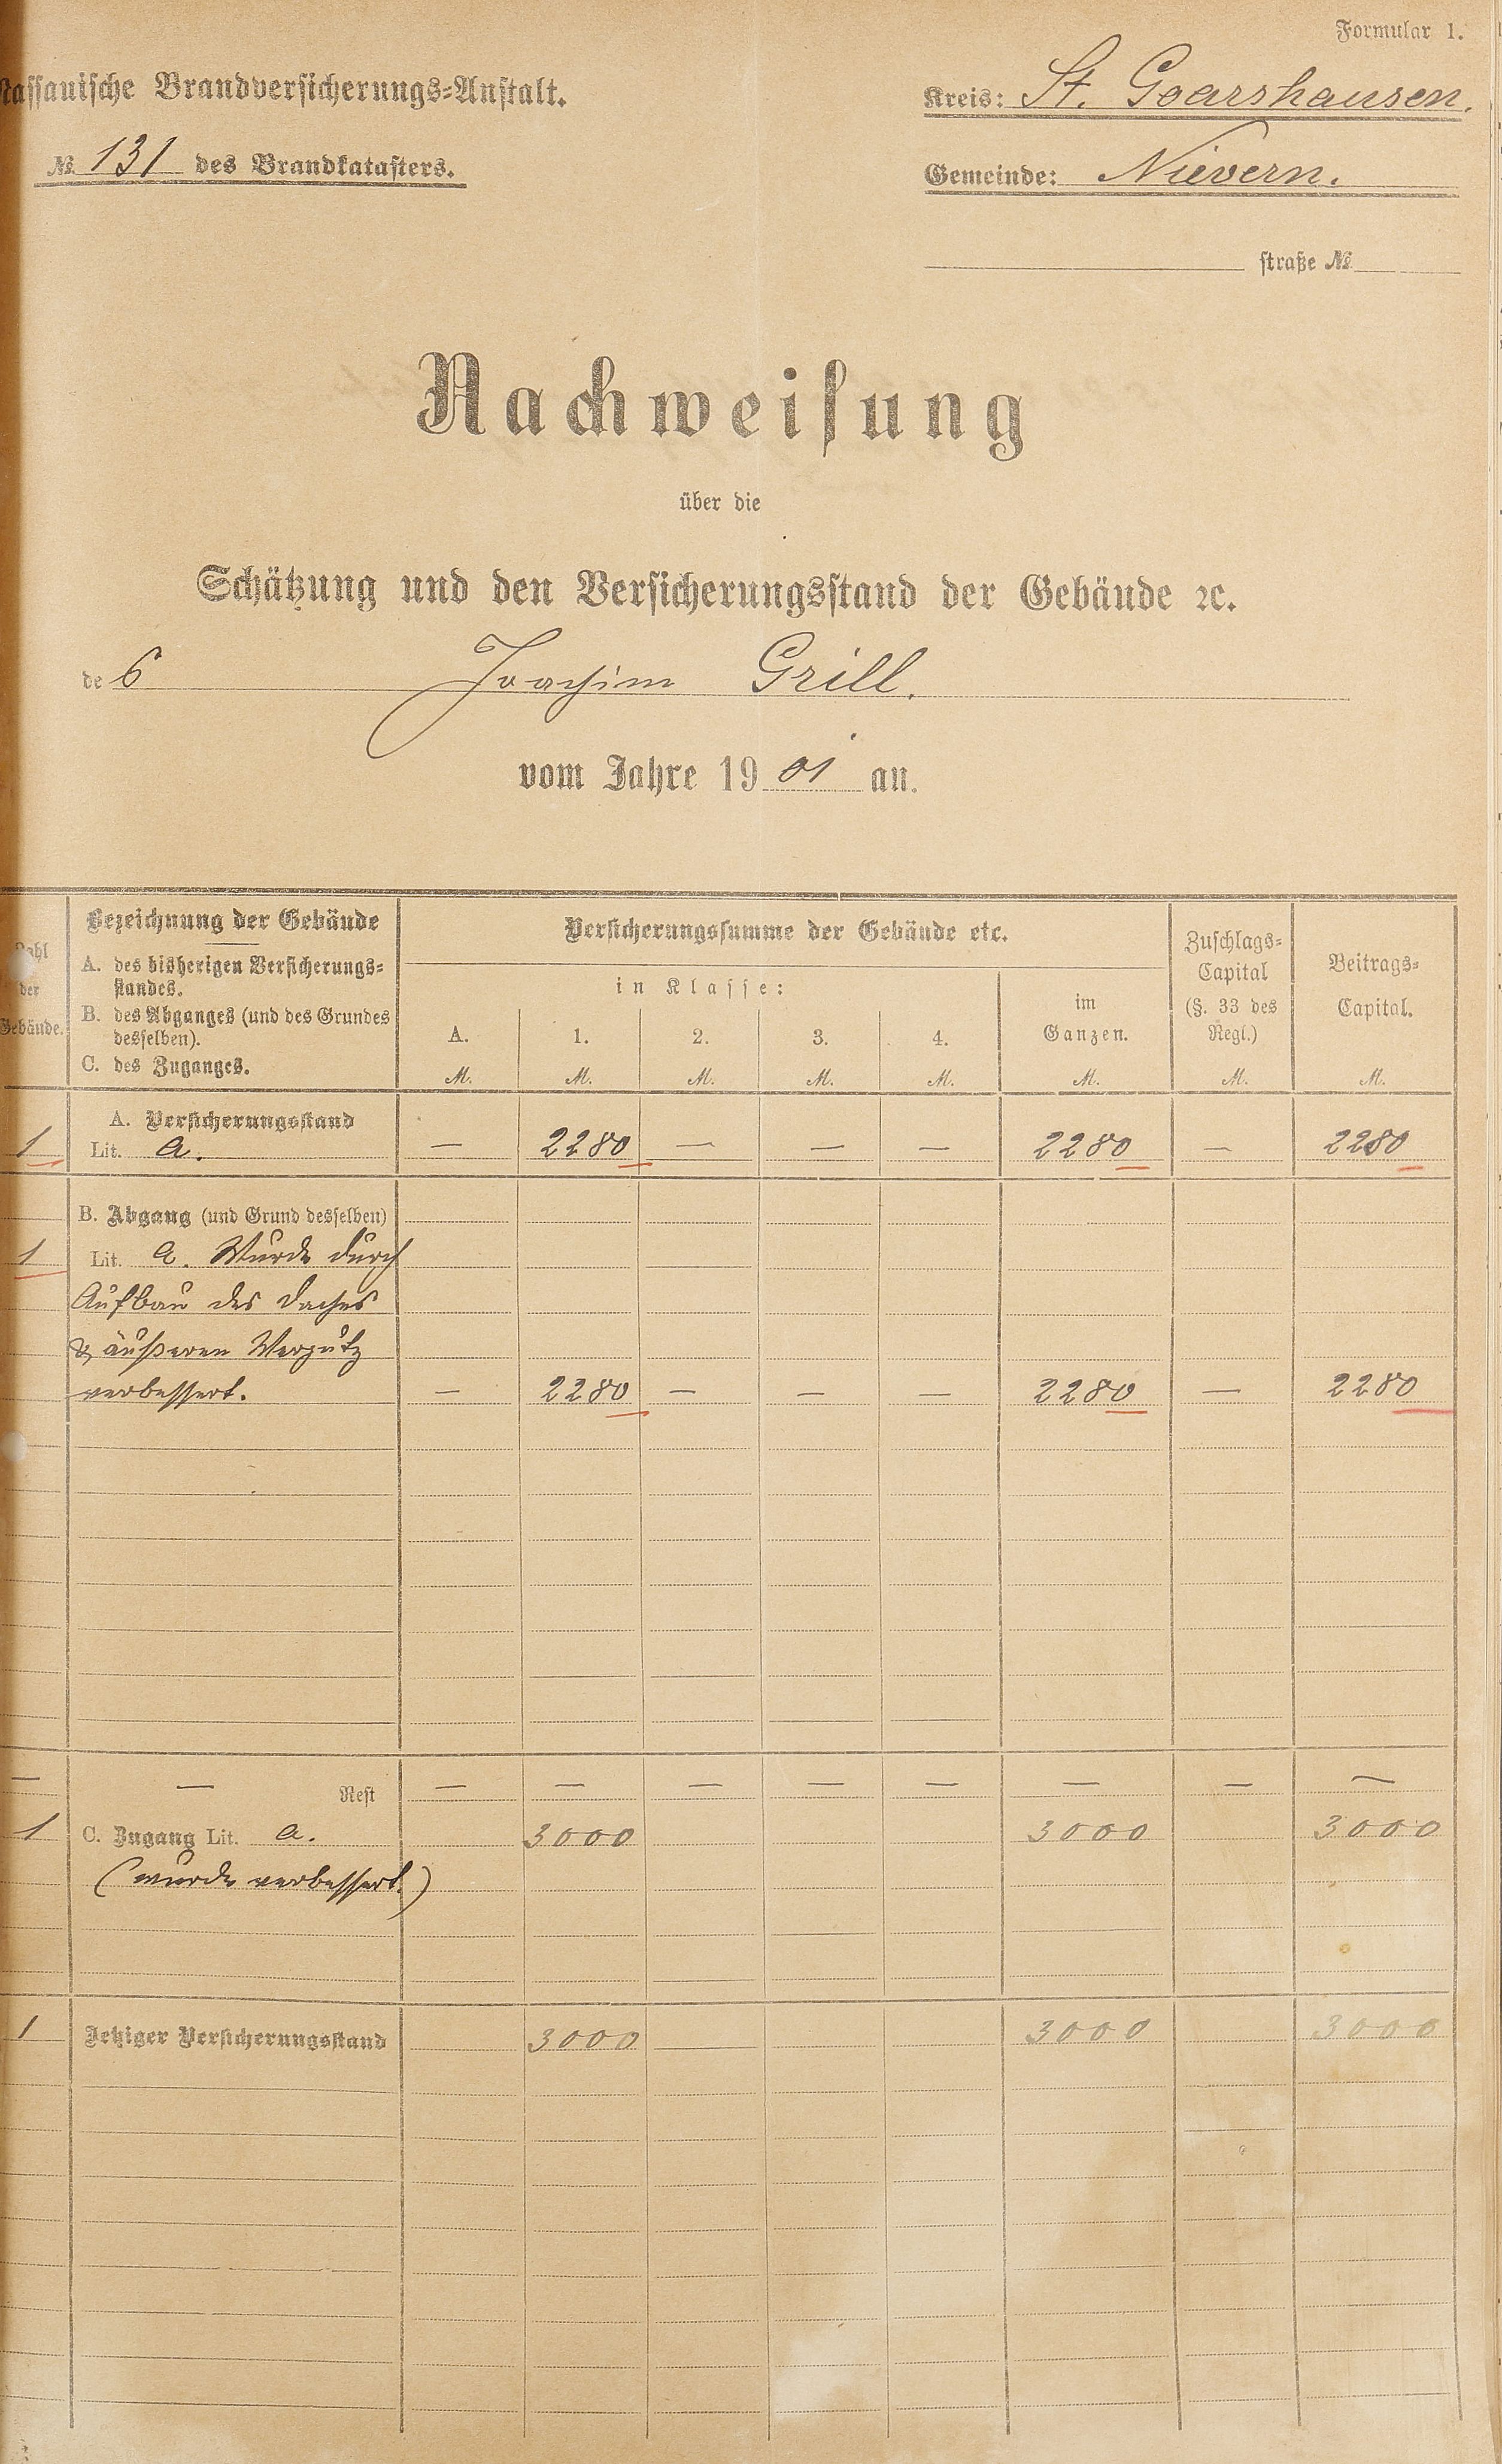 Formular 1.
Nassauische Brandversicherungs-Anstalt.
Kreis: St. Goarshausen.
№ 131 des Brandkatasters.
Gemeinde: Nievern.
straße №
Nachweisung
über die
Schätzung und den Versicherungsstand der Gebäude ꝛc.
des Joachim Grill.
vom Jahre 1901 an.
Zahl der Gebäude.
Bezeichnung der Gebäude
A. des bisherigen Versicherungs-
standes.
B. des Abganges (und des Grundes
desselben).
C. des Zuganges.
Versicherungssumme der Gebäude etc.
in Klasse:
A. 1. 2. 3. 4.
im
Ganzen.
Zuschlags-
Capital
(§. 33 des
Regl.)
Beitrags-
Capital.
M. M. M. M. M. M. M. M.
A. Versicherungsstand
1 Lit. a. — 2280 — — — 2280 — 2280
B. Abgang (und Grund desselben)
1 Lit. a. Wurde durch
Aufbau des Daches
& äußeren Verputz
verbessert. — 2280 — — — 2280 — 2280
— — Rest — — — — — — — —
1 C. Zugang Lit. a. 3000 3000 3000
(wurde verbessert.)
1 Jetziger Versicherungsstand 3000 3000 3000